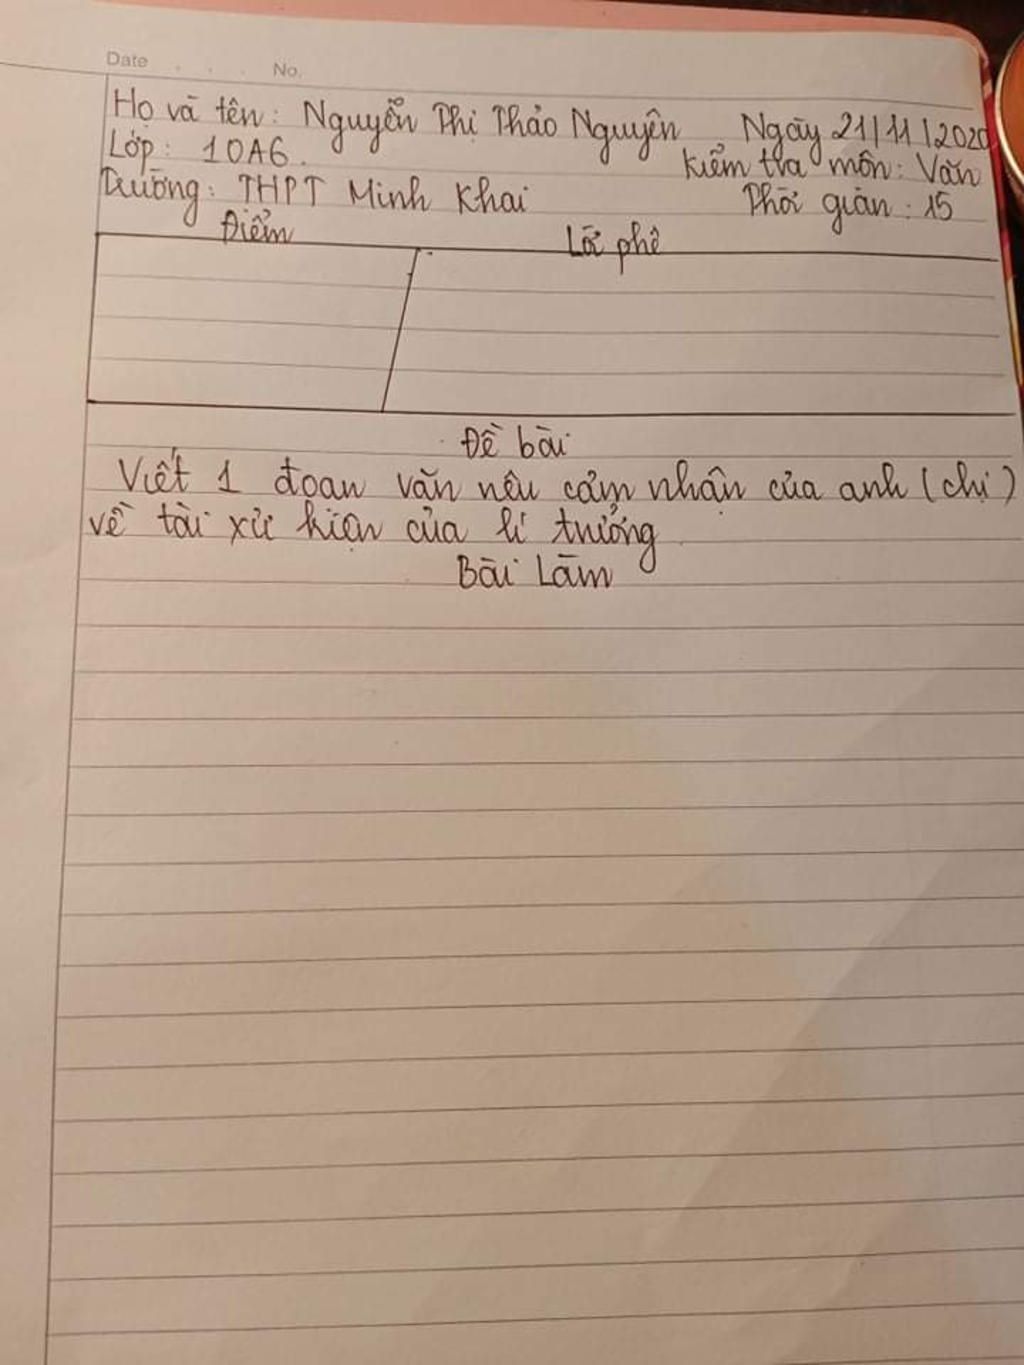 Date . . . No.
Họ và tên: Nguyễn Thị Thảo Nguyên Ngày 21/11/2020
Lớp: 10A6. Kiểm tra môn: Văn
Trường: THPT Minh Khai Thời gian: 15
Điểm Lời phê
Đề bài
Viết 1 đoạn văn nêu cảm nhận của anh (chị)
về tài xử kiện của lí trưởng.
Bài Làm